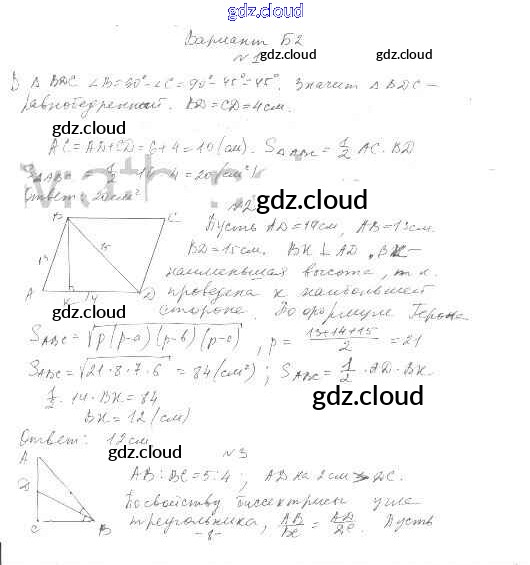 gdz.cloud
Вариант Б2
№1
gdz.cloud gdz.cloud
В Δ BDC ∠B=90°-∠C=90°-45°=45°. Значит Δ BDC -
равнобедренный. BD=CD=4см.
gdz.cloud
AC=AD+CD=6+4=10(см). S_ΔABC = 1/2 AC·BD
gdz.cloud
S_ΔABC = 1/2 · 10 · 4 = 20 (см²)
Ответ: 20см²
№2
gdz.cloud
B C
Пусть AD=14см, AB=13см.
BD=15см. BK ⊥ AD. BK -
13 15
наименьшая высота, т.к.
A K 14 D
проведена к наибольшей
стороне. По формуле Герона
gdz.cloud
S_ABC=√p(p-a)(p-b)(p-c), p = (13+14+15)/2 = 21
S_ABC=√21·8·7·6 = 84(см²); S_ABC=1/2·AD·BK
gdz.cloud
1/2·14·BK=84
gdz.cloud
BK=12(см)
Ответ: 12см
gdz.cloud
№3
A
D
C B
AB:BC=5:4; AD на 2см > DC.
По свойству биссектрисы угла
треугольника, AB/BC = AD/DC. Пусть
-8-
gdz.cloud gdz.cloud